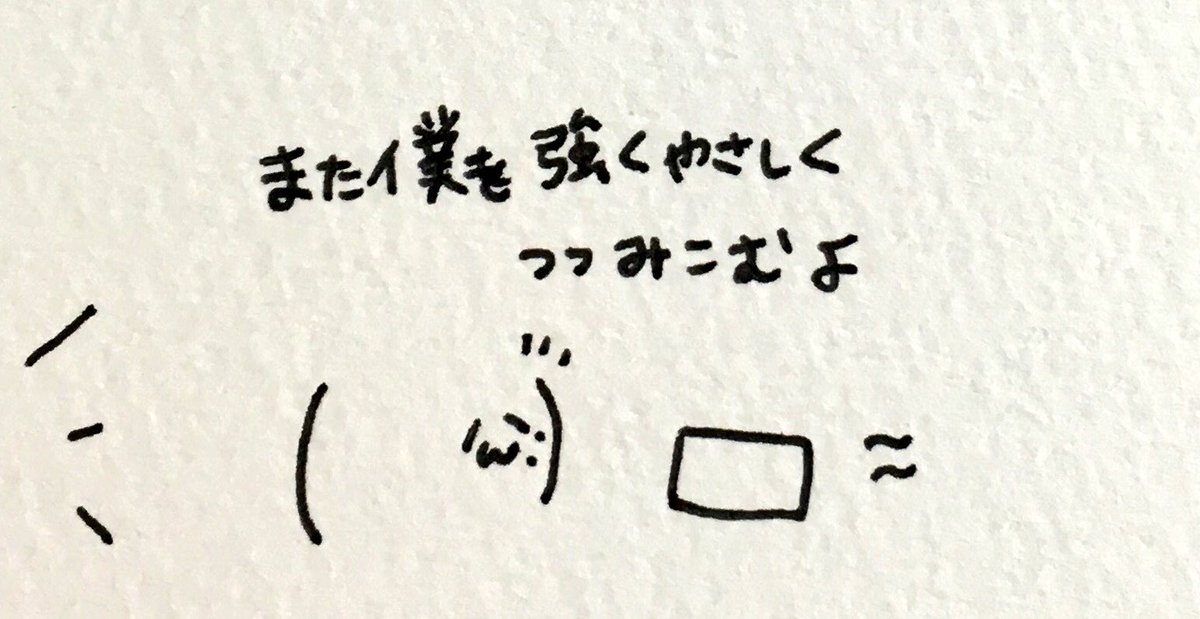 また僕を強くやさしく
つつみこむよ